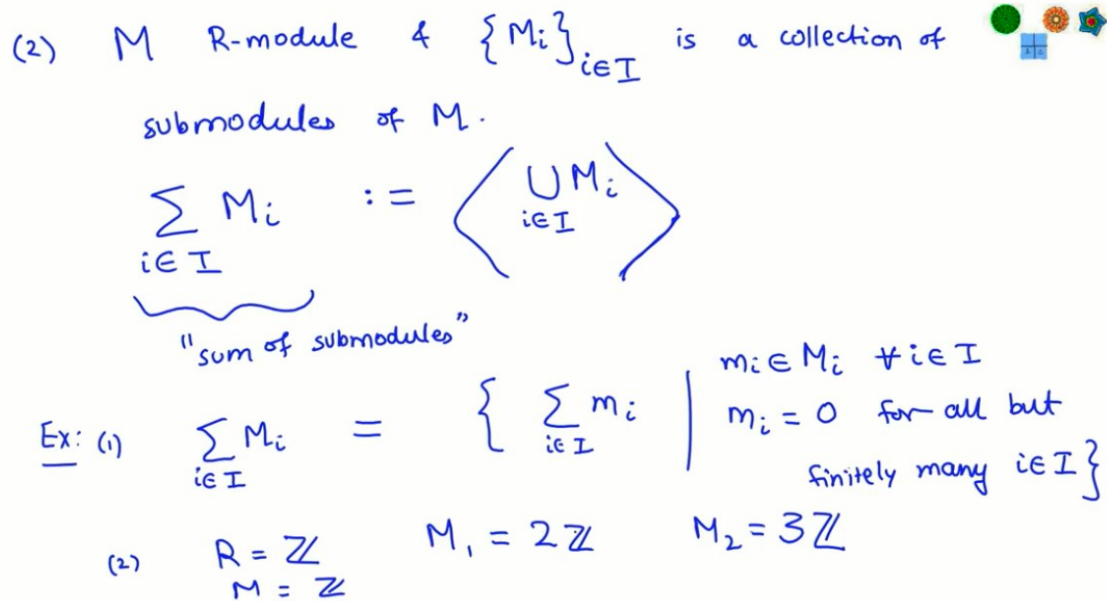 (2) M R-module & {M_i}_{i∈I} is a collection of
submodules of M.
∑_{i∈I} M_i := ⟨ ⋃_{i∈I} M_i ⟩
"sum of submodules"
Ex: (1) ∑_{i∈I} M_i = { ∑_{i∈I} m_i | m_i ∈ M_i ∀ i∈I
m_i = 0 for all but
finitely many i∈I }
(2) R = ℤ M_1 = 2ℤ M_2 = 3ℤ
M = ℤ